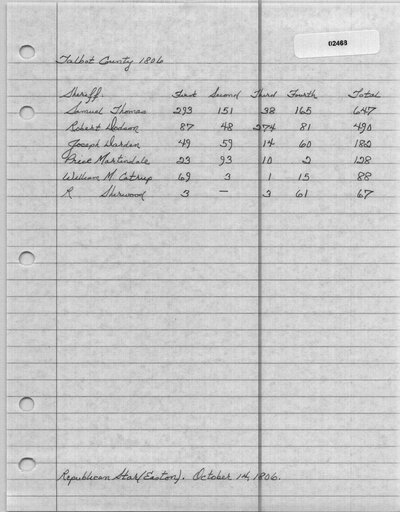 02468
Talbot County 1806
Sheriff. First Second Third Fourth Total
Samuel Thomas 293 151 38 165 647
Robert Dodson 87 48 274 81 490
Joseph Darden 49 59 14 60 182
Price Martindale 23 93 10 2 128
William M. Catrup 69 3 1 15 88
R Sherwood 3 — 3 61 67
Republican Star (Easton). October 14, 1806.